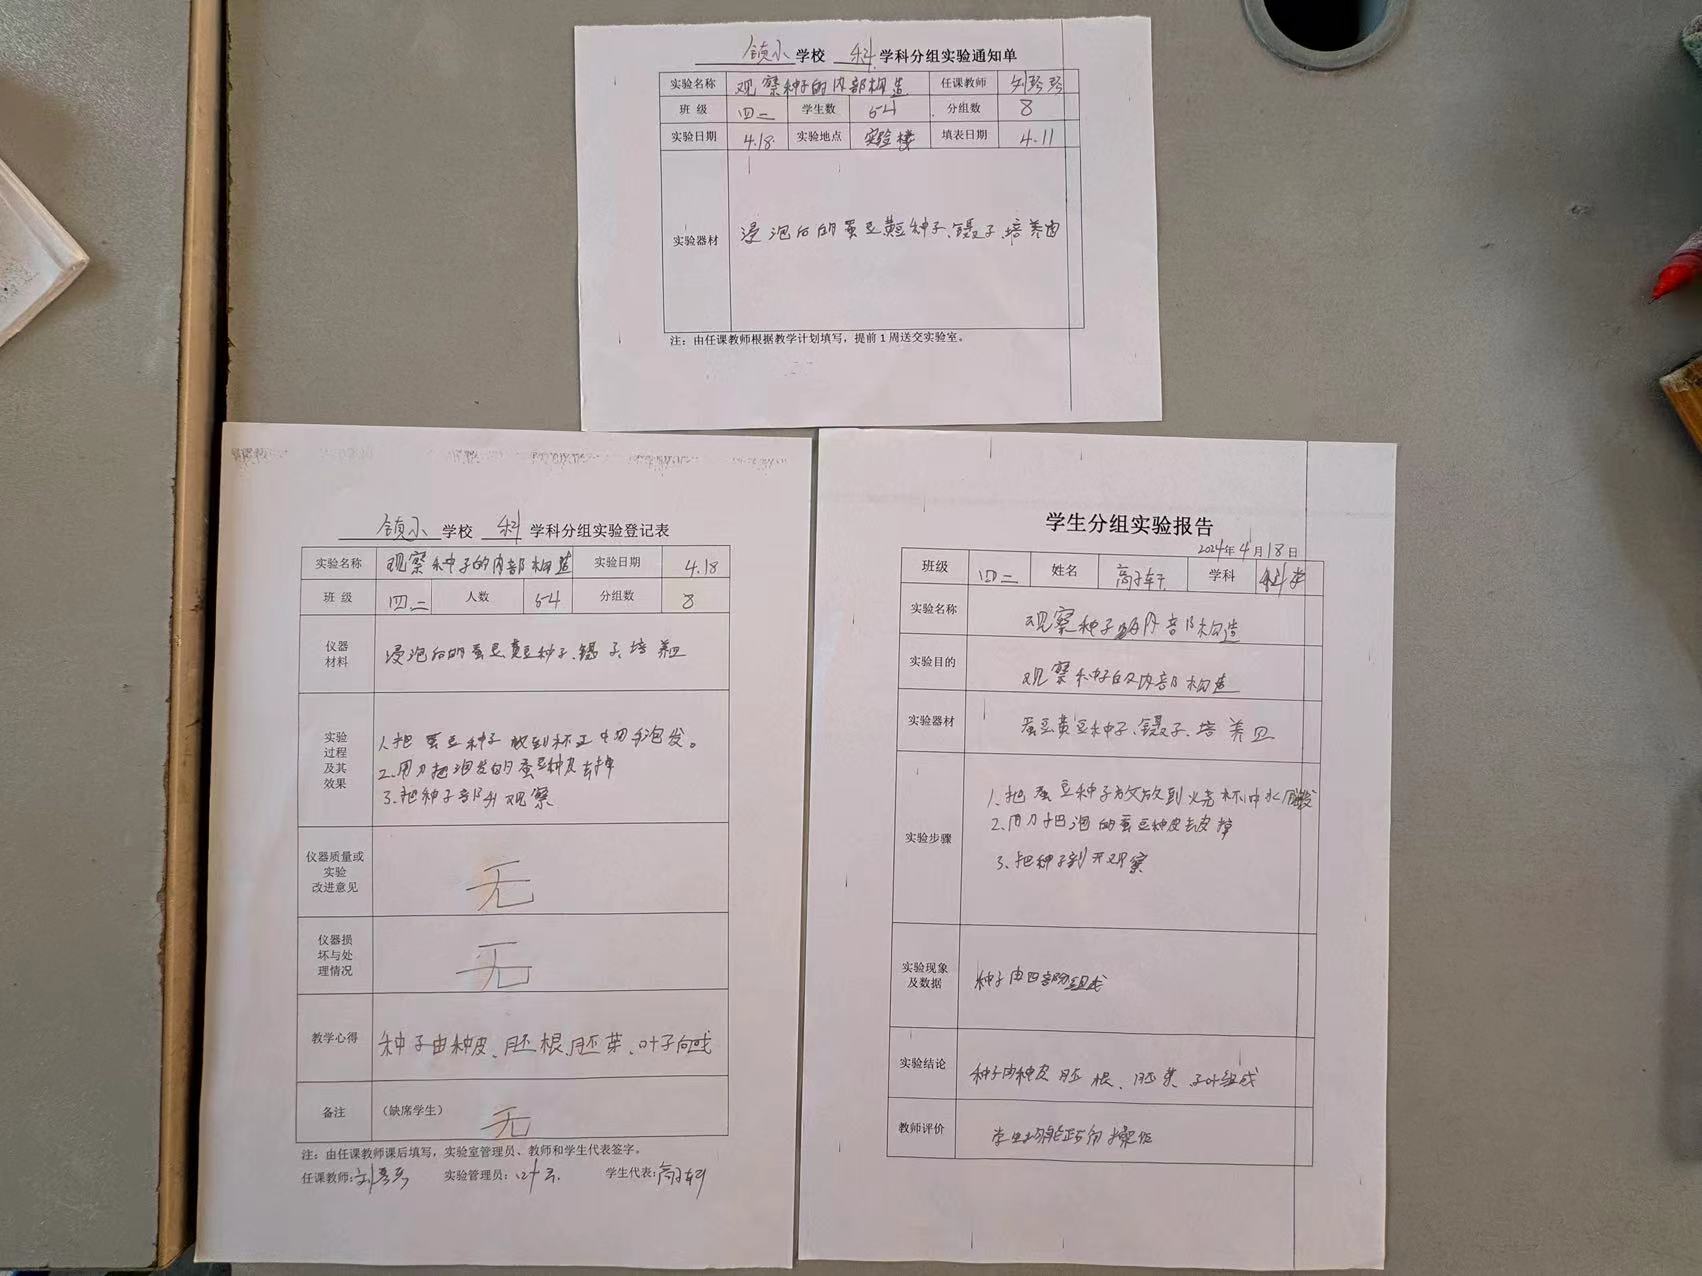 镇小学校 科学科分组实验通知单
实验名称 观察种子的内部构造 任课教师
班级 四二 学生数 54 分组数 8
实验日期 4.18. 实验地点 实验楼 填表日期 4.11
实验器材 浸泡后的蚕豆黄豆种子、镊子、培养皿
注：由任课教师根据教学计划填写，提前1周送交实验室。
镇小学校 科学科分组实验登记表
实验名称 观察种子的内部构造 实验日期 4.18
班级 四.二 人数 54 分组数 8
仪器
材料
浸泡后的蚕豆黄豆种子、镊子、培养皿
实验
过程
及其
效果
1、把蚕豆种子放到杯 中 泡发。
2、用刀把泡发的蚕豆种皮去掉
3、把种子 观察
仪器质量或
实验
改进意见
无
仪器损
坏与处
理情况
无
教学心得 种子由种皮、胚根、胚芽、叶子 成
备注 （缺席学生） 无
注：由任课教师课后填写，实验室管理员、教师和学生代表签字。
任课教师： 实验管理员： 学生代表：
学生分组实验报告
2024年4月18日
班级 四二 姓名 高子轩 学科 科学
实验名称 观察种子的内部构造
实验目的 观察种子的内部构造
实验器材 蚕豆黄豆种子、镊子、培养皿
实验步骤
1、把蚕豆种子放放到烧杯中水
2、用刀把泡的蚕豆种皮去皮掉
3、把种子 开观察
实验现象
及数据
种子由四部分组成
实验结论 种子由种皮 胚根、胚芽、子叶组成
教师评价 学生均能正确操作